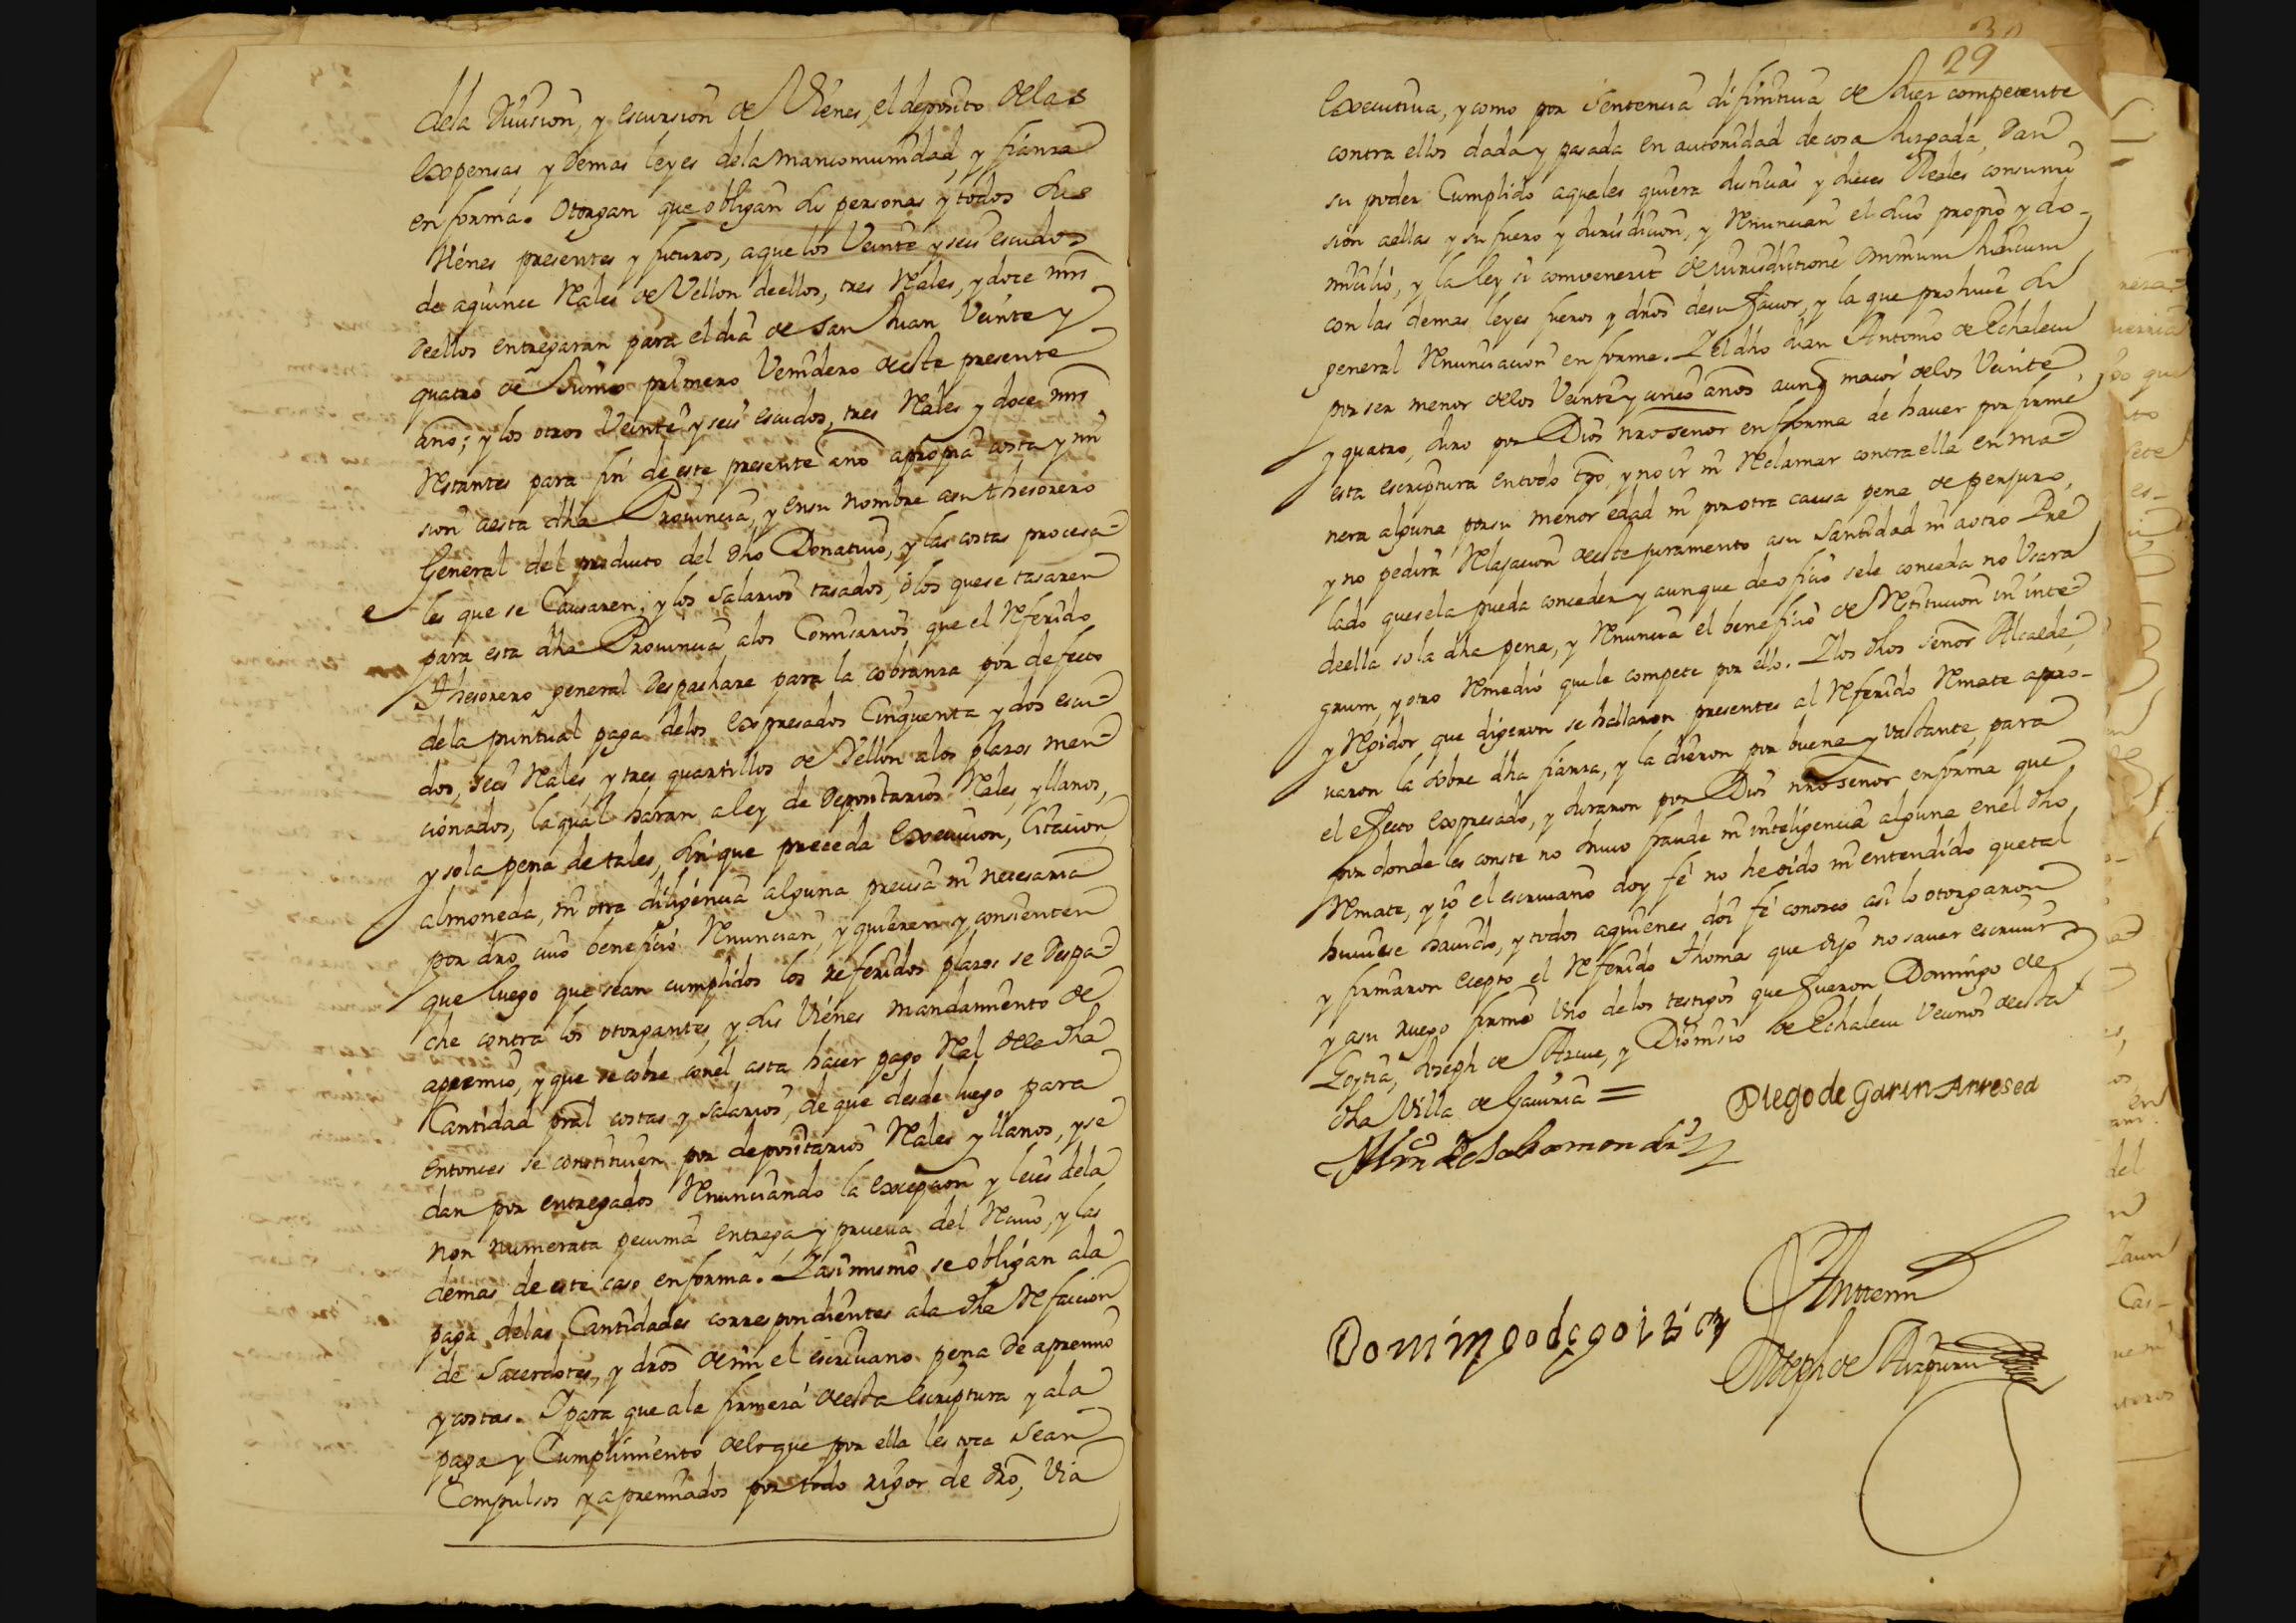 dela Diuision, y escursion de Vienes, el deposito delas
Expensas, y demas leyes dela mancomunidad, y fianza
en forma. Otorgan que obligan sus personas y todos sus
Vienes presentes y futuros, a que los Veinte y seis escudos
de a quince Reales de Vellon de ellos, tres Reales, y doce mrs
deellos entregaran para el dia de san Juan Veinte y
quatro de Junio primero Venidero deeste presente
año; y los otros Veinte y seis escudos, tres Reales y doce mrs
Restantes para fin de este presente año a propia costa y mi
sion aesta dha Prouincia, y ensu nombre asu thesorero
General del producto del dho Donatiuo, y las costas procesa
les que se Causaren; y los Salarios tasados, ó los que se tasaren
para esta dha Prouincia, alos Comisarios que el Referido
thesorero general Despachare para la cobranza por defecto
dela puntual paga delos Expresados Cinquenta y dos escu
dos, seis Reales, y tres quartillos de Vellon alos plazos men
cionados, laqual haran a ley de Depositarios Reales, y llanos,
y sola pena de tales, sin que preceda Execucion, Citacion
almoneda, ni otra diligencia alguna precisa ni necesaria
por dro, cuio beneficio Renuncian, y quieren y consienten
que luego que sean cumplidos los referidos plazos se Despa
che contra los otorgantes, y sus Vienes mandamiento de
apremio, y que se cobre conel asta hacer pago Real dela dha
Cantidad pral costas y salarios, de que desde luego para
entonces se constituien por depositarios Reales y llanos, y se
dan por entregados Renunciando la excepcion y leies dela
non numerata pecunia entrega, y prueua del Reciuo, y las
demas de este caso en forma. Y asimismo se obligan ala
paga delas Cantidades correspondientes ala dha Refaccion
de Sacerdotes, y dros demi el escriuano pena de apremio
y costas. Y para que ala firmeza deesta Escriptura y ala
paga y Cumplimiento deloque por ella les toca Sean
Compulsos y apremiados por todo rigor de dro, Via
29
Executiua, y como por sentencia difinitiua de Juez competente
contra ellos dada y pasada en autoridad de cosa Juzgada, Dan
su poder Cumplido a quales quiera Justicias y Jueces Reales consumi
sion aellas y su fuero y Jurisdicion, y Renuncian el suio propio y do-
micilio, y la ley si comvenerit de iurisdictione omnium Judicum
con las demas leyes fueros y dros desu fauor, y la que prohiue la
general Renunciacion en forma. Y el dho Juan Antonio de Echaleui
por ser menor delos Veinte y cinco años aunq maior delos Veinte
y quatro, Juro por Dios nro senor en forma de hauer por firme
esta escriptura entodo tpo, y no ir ni Reclamar contra ella en ma
nera alguna por su menor edad ni por otra causa pena de perjuro,
y no pedira Relajacion deeste juramento asu Santidad ni aotro Pre
lado que se la pueda conceder y aunque de oficio sele conceda no Usara
deella so la dha pena, y Renuncia el beneficio de Restitucion in inte
grum, y otro Remedio que le compete por ello. Y los dhos señor Alcalde,
y Regidor que digeron se hallaron presentes al Referido Remate apro-
uaron la sobre dha fianza, y la dieron por buena y vastante para
el efecto Expresado, y Juraron por Dios nro senor en forma que
por donde les conste no huuo fraude ni inteligencia alguna enel dho
Remate, y io el escriuano doy fe no he oido ni entendido que tal
huuiese hauido, y todos a quienes doi fe conozco asi lo otorgaron
y firmaron excepto el Referido thomas que dijo no sauer escriuir
y asu ruego firmó Uno delos testigos que fueron Domingo de
Goytia, Joseph de Azcue, y Dionisio de Echaleui Vecinos deesta
dha Villa de Gauiria =
Diego de Garin Arresea
Domingo de goitia
Antemi
Joseph de Aizpuru